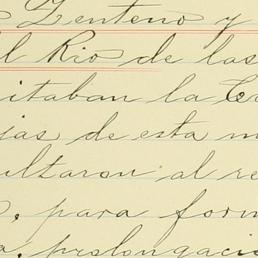 Zenteno y
el Rio de las
itaban la Ca
jas de esta m
ultaron al re
, para form
, prolongaci